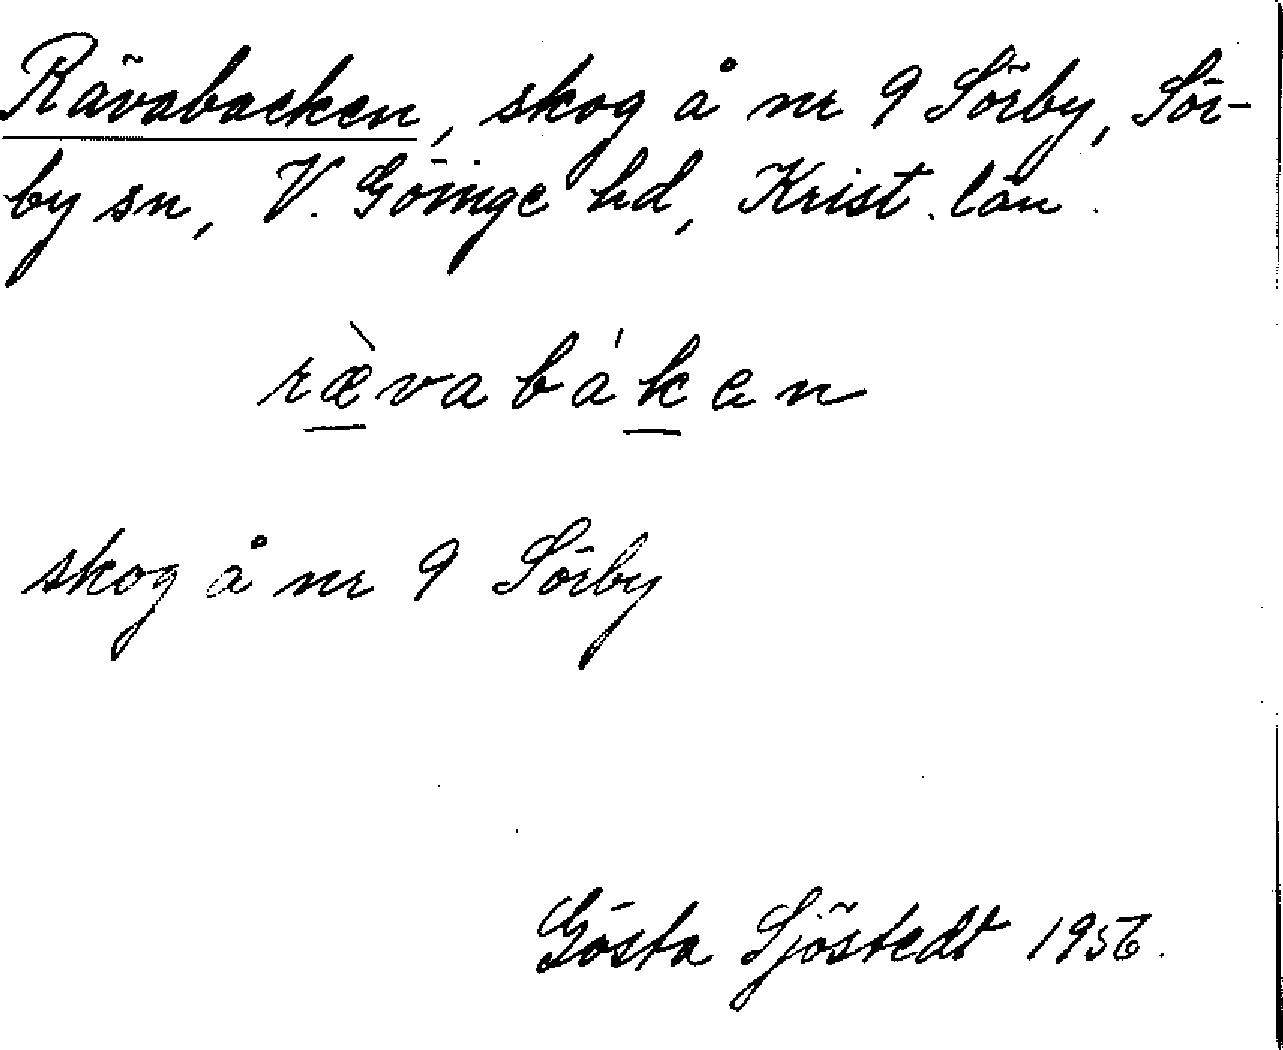 Rävabacken, skog å nr 9 Sörby, Sör-
by sn, V. Göinge hd, Krist. län.
ræ̀vabáken
skog å nr 9 Sörby
Gösta Sjöstedt 1956.